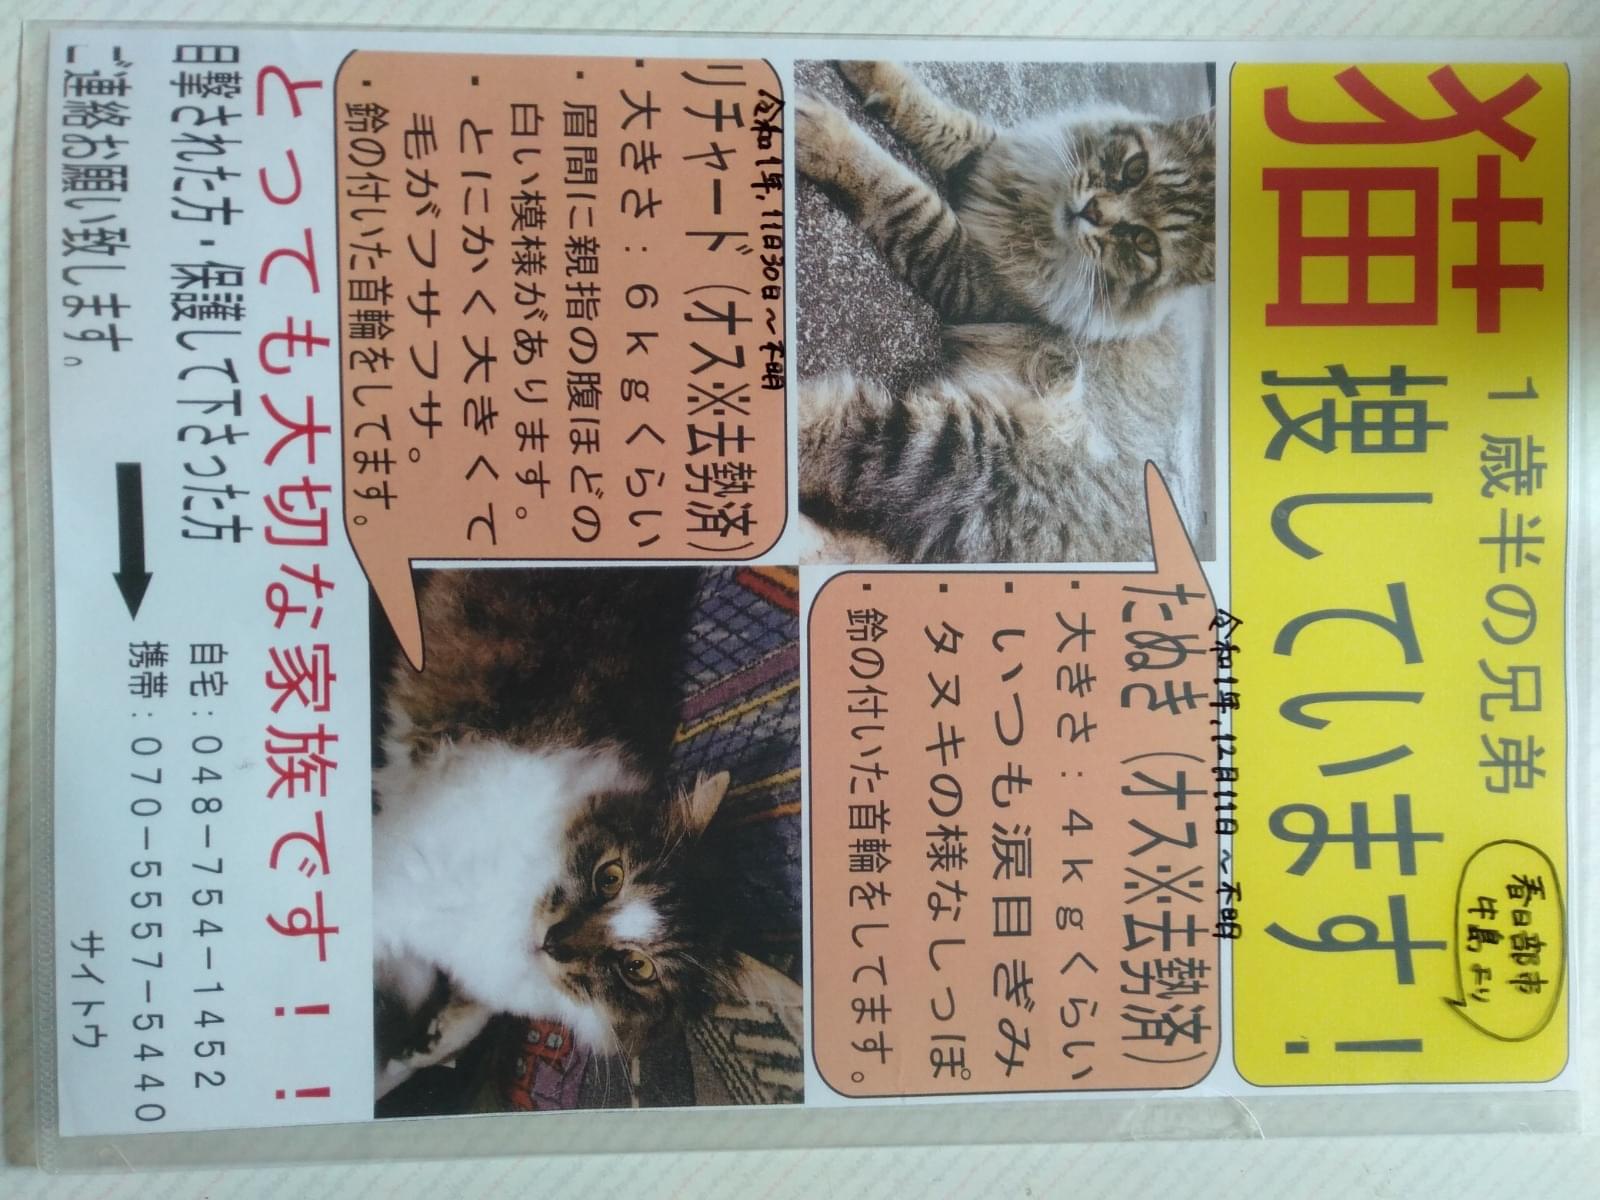 猫
1歳半の兄弟
捜しています!
春日部市
牛島より
令和1年,12月11日~不明
たぬき(オス※去勢済)
・大きさ:4kgくらい
・いつも涙目ぎみ
・タヌキの様なしっぽ
・鈴の付いた首輪をしてます。
令和1年,11日30日~不明
リチャード(オス※去勢済)
・大きさ:6kgくらい
・眉間に親指の腹ほどの
白い模様があります。
・とにかく大きくて
毛がフサフサ。
・鈴の付いた首輪をしてます。
とっても大切な家族です!!
目撃された方・保護して下さった方
ご連絡お願い致します。
自宅:048-754-1452
携帯:070-5557-5440
サイトウ